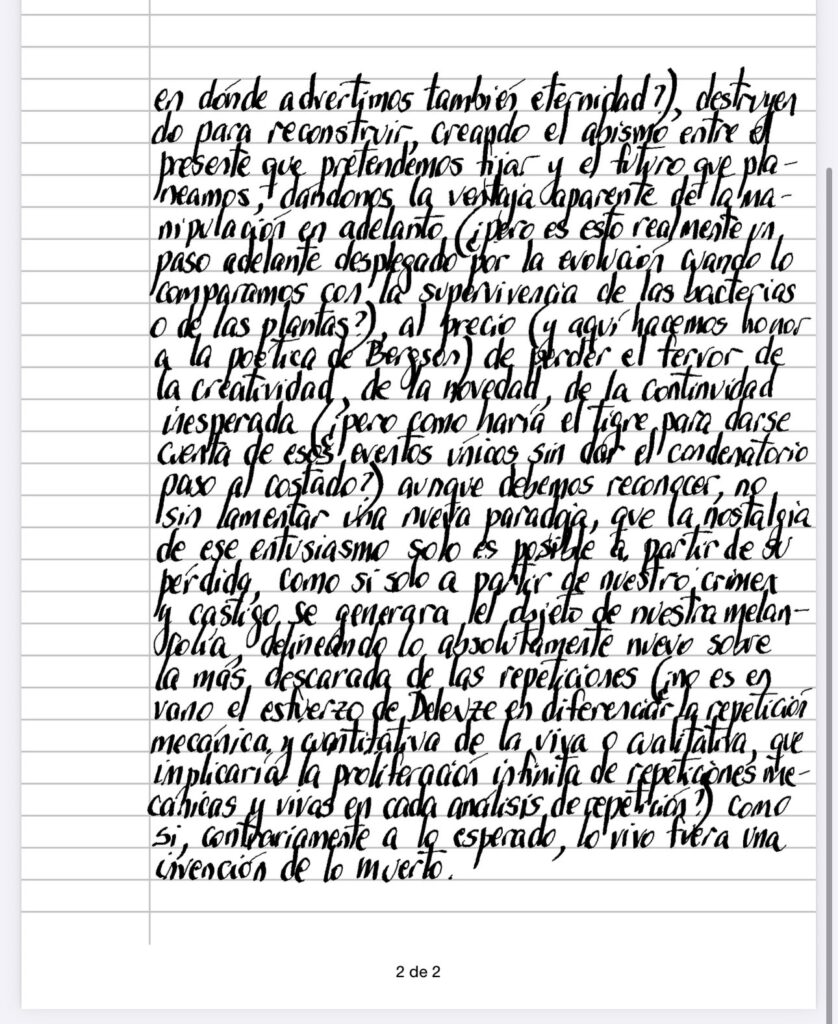 en dónde advertimos también eternidad?), destruyen
do para reconstruir, creando el abismo entre el
presente que pretendemos fijar y el futuro que pla-
neamos, dándonos la ventaja aparente de la ma-
nipulación en adelanto (¿pero es esto realmente un
paso adelante desplegado por la evolución cuando lo
comparamos con la supervivencia de las bacterias
o de las plantas?), al precio (y aquí hacemos honor
a la poética de Bergson) de perder el fervor de
la creatividad, de la novedad, de la continuidad
inesperada (¿pero como haría el tigre para darse
cuenta de esos eventos únicos sin dar el condenatorio
paso al costado?) aunque debemos reconocer, no
sin lamentar una nueva paradoja, que la nostalgia
de ese entusiasmo solo es posible a partir de su
pérdida, como si solo a partir de nuestro crimen
y castigo se generara el objeto de nuestra melan-
colía, delineando lo absolutamente nuevo sobre
la más descarada de las repeticiones (¿no es en
vano el esfuerzo de Deleuze en diferenciar la repetición
mecánica y cuantitativa de la viva o cualitativa, que
implicaría la proliferación infinita de repeticiones me-
cánicas y vivas en cada análisis de repetición?) como
si, contrariamente a lo esperado, lo vivo fuera una
invención de lo muerto.
2 de 2